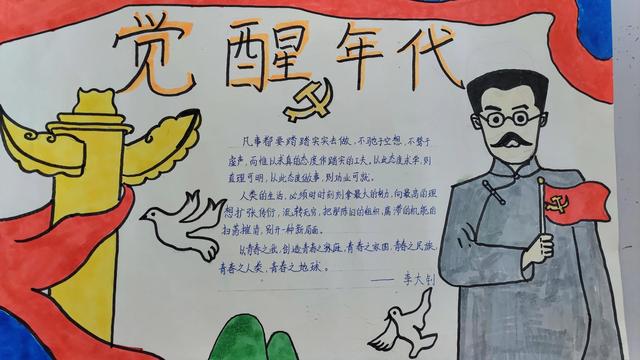 觉醒年代
凡事都要踏踏实实去做,不驰于空想,不骛于
虚声,而惟以求真的态度作踏实的工夫。以此态度求学,则
真理可明,以此态度做事,则功业可就。
人类的生活,必须时时刻刻拿最大的努力,向最高的理
想扩张传衍,流转无穷,把那陈旧的组织,腐滞的机能
扫荡摧清,别开一种新局面。
以青春之我,创造青春之家庭,青春之家国,青春之民族,
青春之人类,青春之地球。
——李大钊